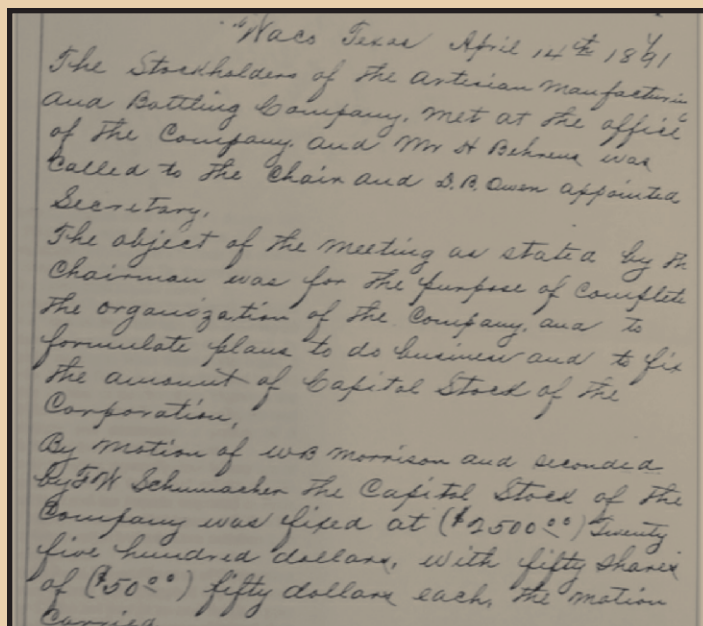 "Waco Texas April 14th 1891
The Stockholders of the Artesian Manufacturing
and Bottling Company. Met at the office
of the Company. and Mr H Behrens was
Called to the Chair and D. B. Owen appointed
Secretary.
The object of the Meeting as stated by th
Chairman was for the purpose of Complete
the organization of the Company. and to
formulate plans to do business and to fix
the amount of Capital Stock of the
Corporation.
By Motion of W B Morrison and seconded
by F W Schumacher the Capital Stock of the
Company was fixed at ($2500.00) Twenty
five hundred dollars, with fifty shares
of ($50.00) fifty dollars each, the motion
Carried